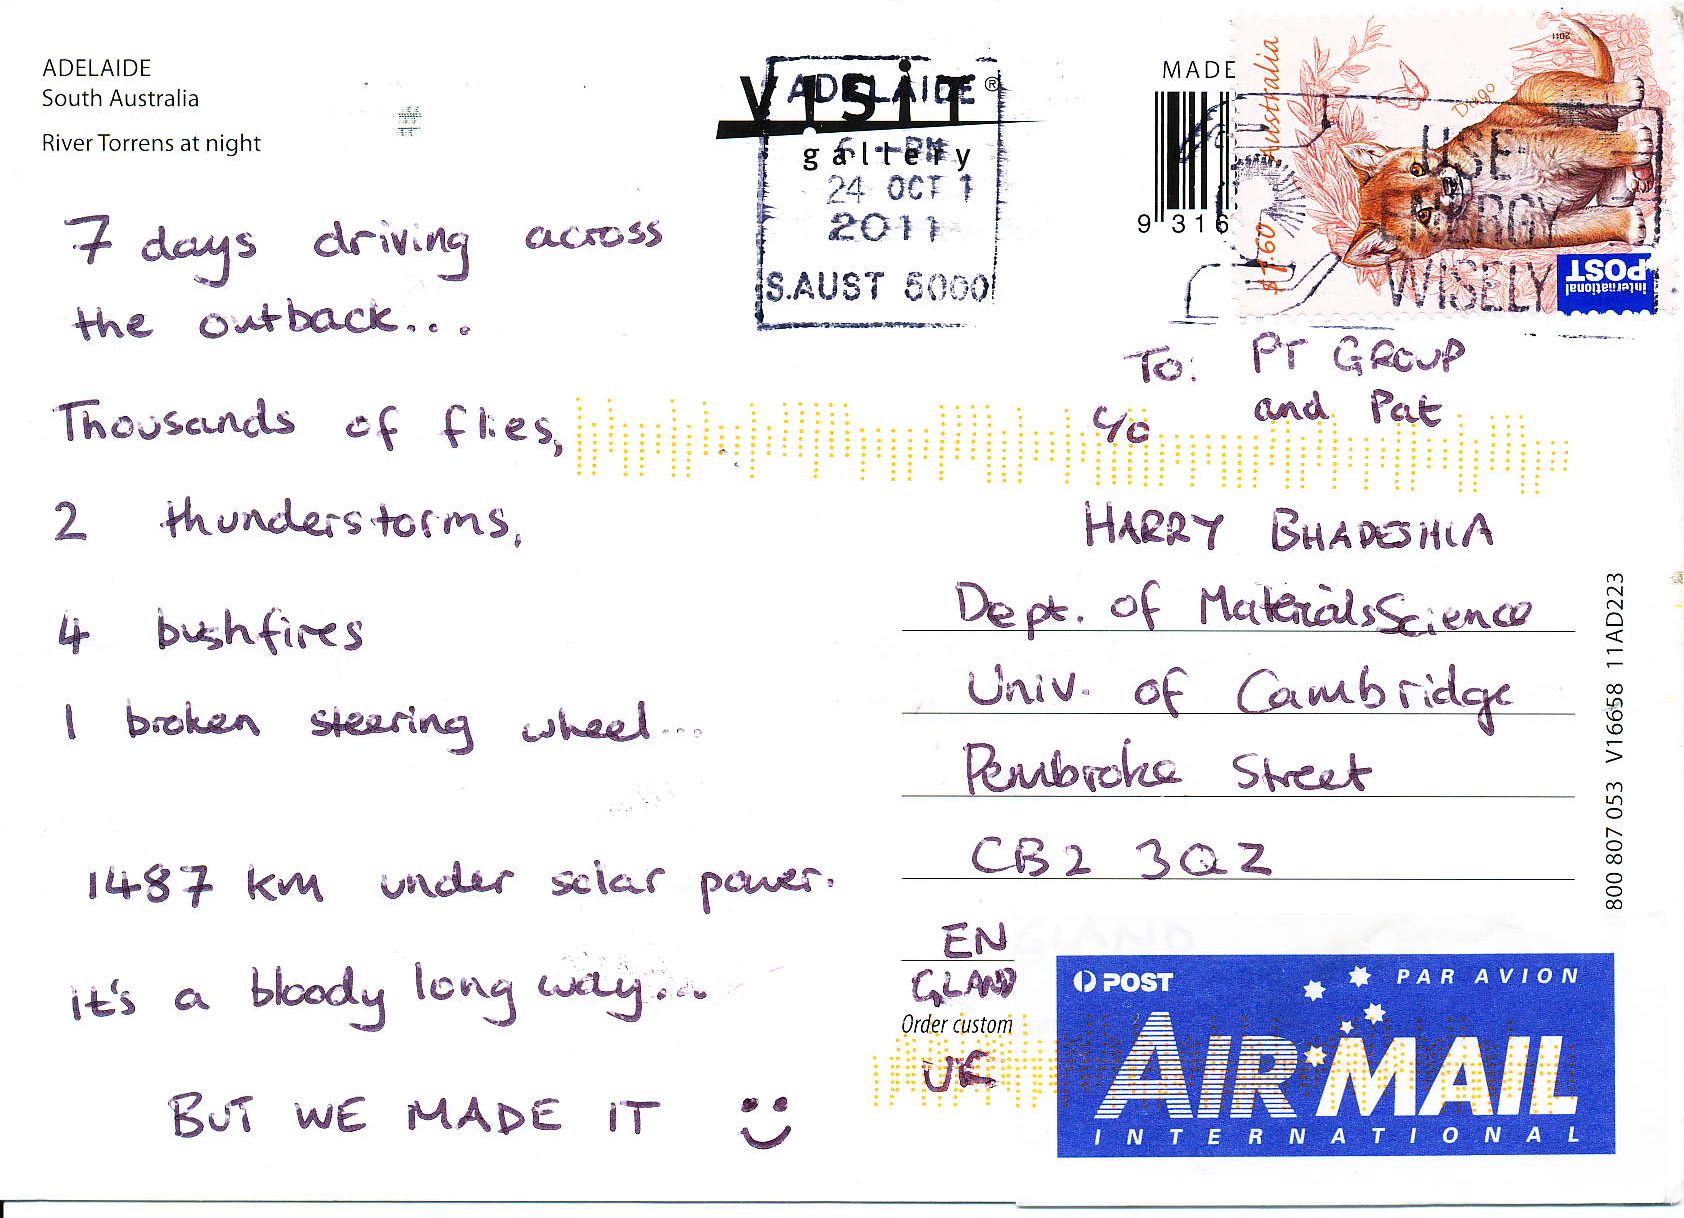 ADELAIDE
South Australia
River Torrens at night
7 days driving across
the outback...
Thousands of flies,
2 thunderstorms,
4 bushfires
1 broken steering wheel...
1487 km under solar power.
it's a bloody long way...
BUT WE MADE IT
VISIT ®
gallery
ADELAIDE
6 - PM
24 OCT 1
2011
S.AUST 5000
MADE
9 316
Australia
Dingo
2011
$1.60
International
POST
USE
ENERGY
WISELY
To: PT GROUP
and Pat
c/o
HARRY BHADESHIA
Dept. of Materials Science
Univ. of Cambridge
Pembroke Street
CB2 3QZ
EN
GLAND
Order custom
UK
800 807 053 V16658 11AD223
POST PAR AVION
AIR MAIL
INTERNATIONAL